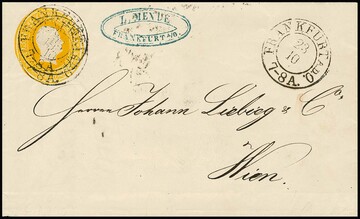 L. MENDE
FRANKFURT a/O
FRANKFURT A.O.
23
10
7-8A.
FRANKFURT A.O.
7-8A.
Herren Johann Liebieg & Co.
Wien.